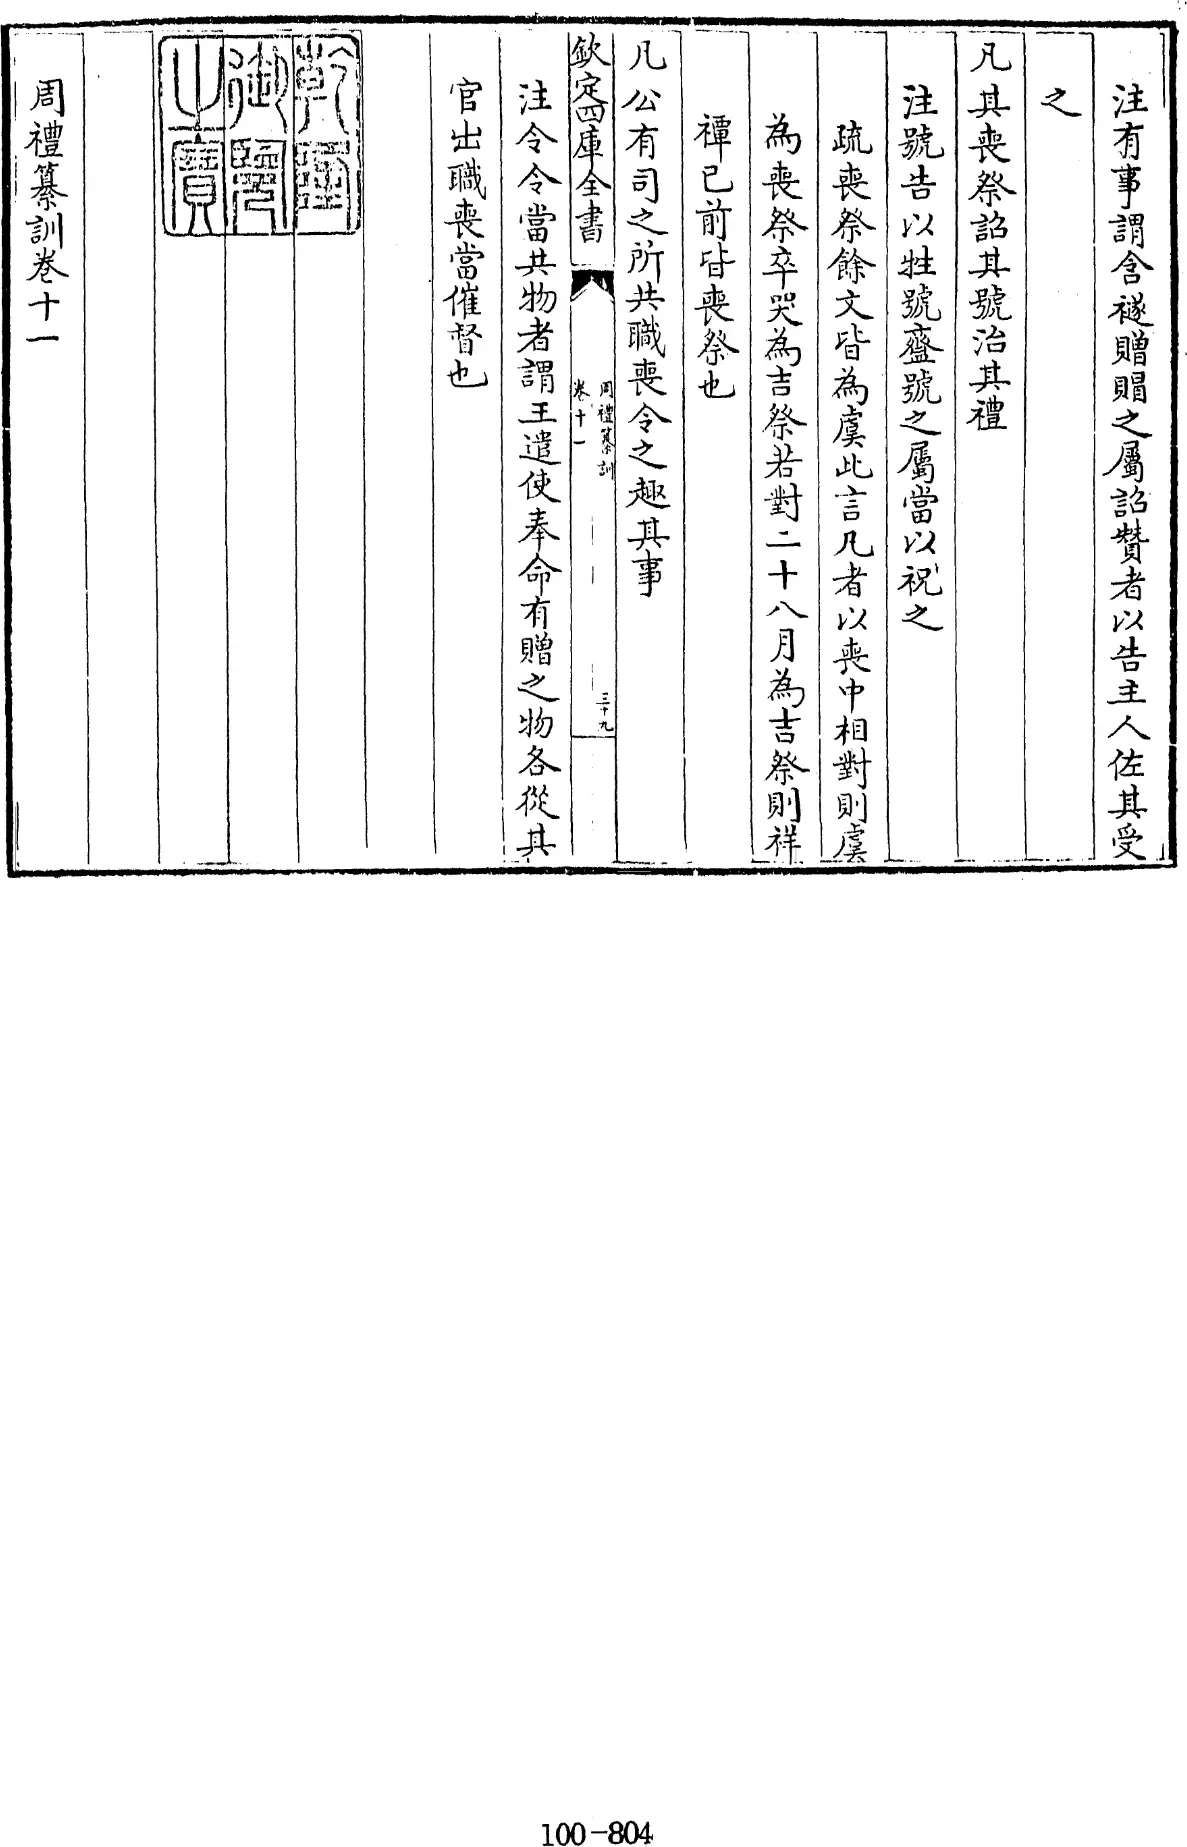 注有事謂含襚贈賵之屬詔贊者以告主人佐其受
之
凡其喪祭詔其號治其禮
注號告以牲號齍號之屬當以祝之
疏喪祭餘文皆為虞此言凡者以喪中相對則虞
為喪祭卒哭為吉祭若對二十八月為吉祭則祥
禫已前皆喪祭也
凡公有司之所共職喪令之趣其事
欽定四庫全書
周禮纂訓
卷十一
三十九
注令令當共物者謂王遣使奉命有贈之物各從其
官出職喪當催督也
乾隆
御覽
之寶
周禮纂訓卷十一
100-804